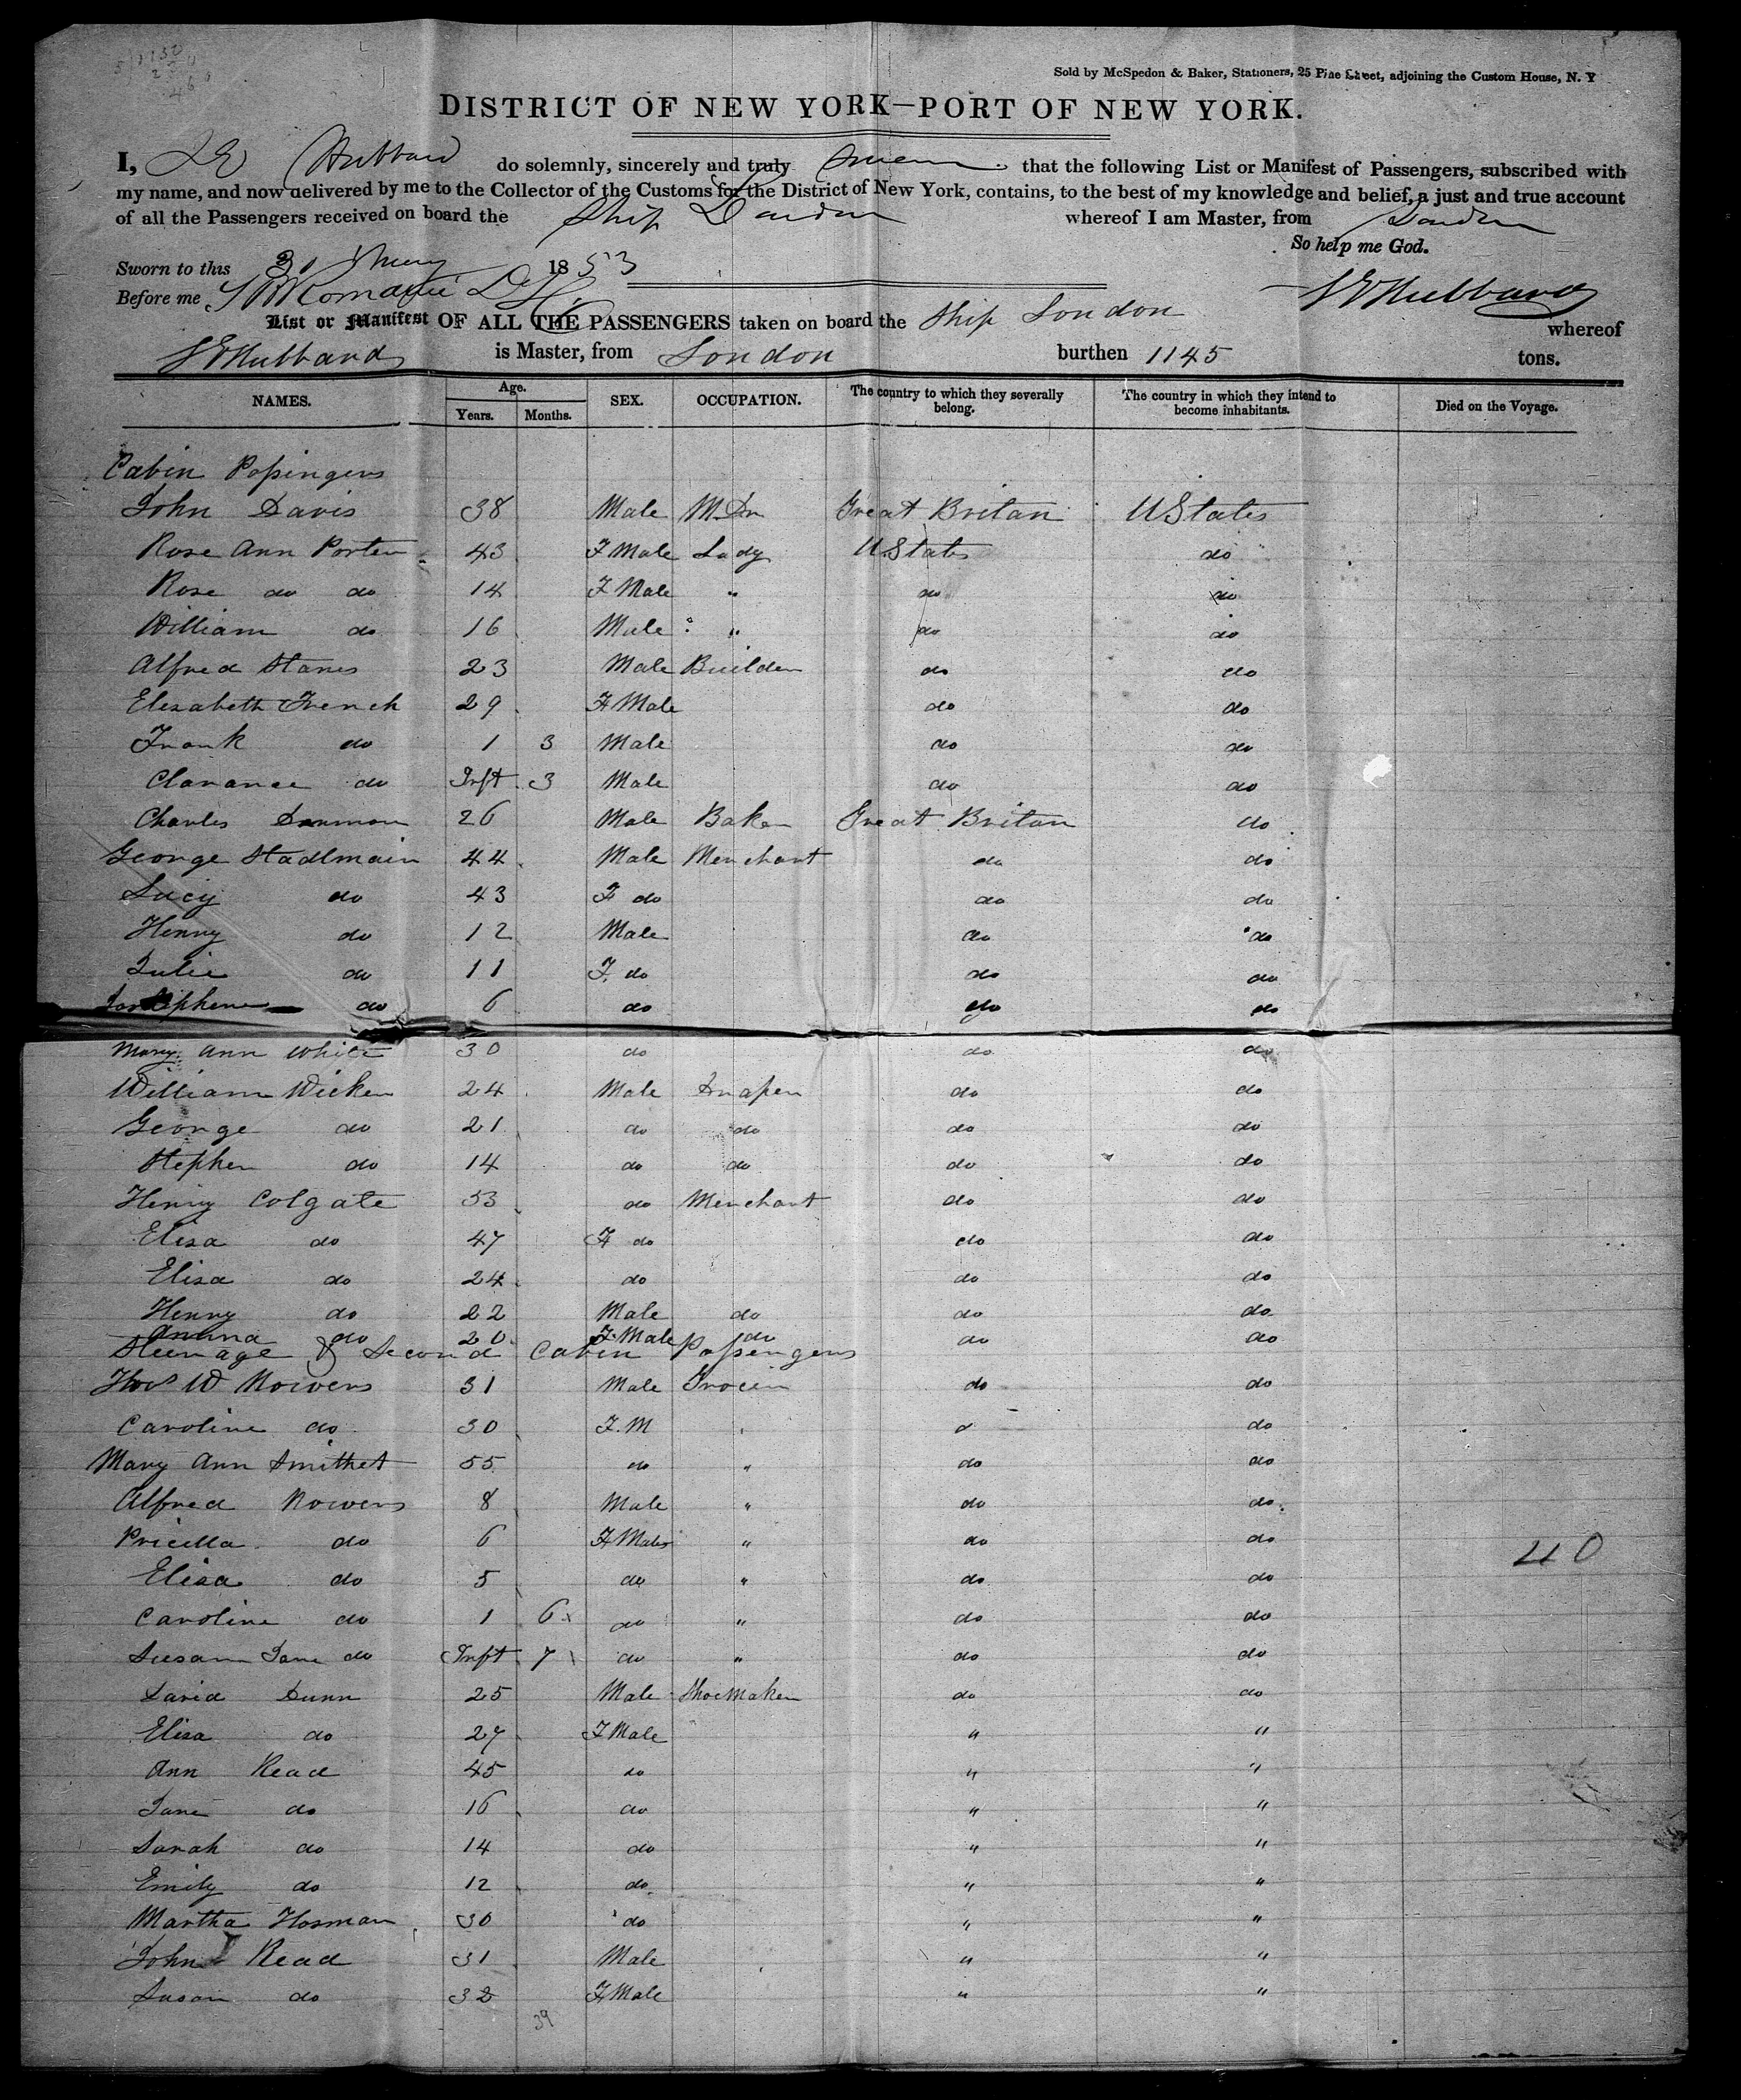 Sold by McSpedon & Baker, Stationers, 25 Pine Street, adjoining the Custom House, N. Y
DISTRICT OF NEW YORK—PORT OF NEW YORK.
I, Hubbard do solemnly, sincerely and truly swear that the following List or Manifest of Passengers, subscribed with
my name, and now delivered by me to the Collector of the Customs for the District of New York, contains, to the best of my knowledge and belief, a just and true account
of all the Passengers received on board the Ship London whereof I am Master, from London
So help me God.
Sworn to this 31 May 1853
Before me
S E Hubbard
List or Manifest OF ALL THE PASSENGERS taken on board the Ship London whereof
S E Hubbard is Master, from London burthen 1145 tons.
NAMES. Age. Years. Months. SEX. OCCUPATION. The country to which they severally belong. The country in which they intend to become inhabitants. Died on the Voyage.
Cabin Passingers
John Davis 38 Male M.Dr Great Britan U States
Rose Ann Porter 43 F Male Lady U States do
Rose do do 14 F Male " do do
William do 16 Male " do do
Alfred Stanes 23 Male Builder do do
Elisabeth French 29 F Male do do
Frank do 1 3 Male do do
Clarance do Inft 3 Male do do
Charles Denman 26 Male Baker Great Britan do
George Stadlmain 44 Male Merchant do do
Lucy do 43 F do do do
Henry do 12 Male do do
Julie do 11 F. do do do
Josephene do 6 do do do
Mary Ann White 30 do do do
William Wicken 24 Male Draper do do
George do 21 do do do do
Stephen do 14 do do do do
Henry Colgate 53 do Merchant do do
Elisa do 47 F do do do
Elisa do 24 do do do
Henry do 22 Male do do do
Amina do 20 F. Male do do do
Steerage & Second Cabin Passengers
Thos W Nowers 31 Male Grocer do do
Caroline do 30 F. M do
Mary Ann Smithet 55 do " do do
Alfred Nowers 8 Male " do do
Pricilla do 6 F Male " do do
40
Elisa do 5 do " do do
Caroline do 1 6 do " do do
Susann Jane do Inft 7 do " do do
David Dunn 25 Male Shoe Maker do do
Elisa do 27 F Male " "
Ann Read 45 do " "
Jane do 16 do " "
Sarah do 14 do " "
Emily do 12 do " "
Martha Hosman 30 do " "
John Read 31 Male " "
Susan do 32 F Male " "
39